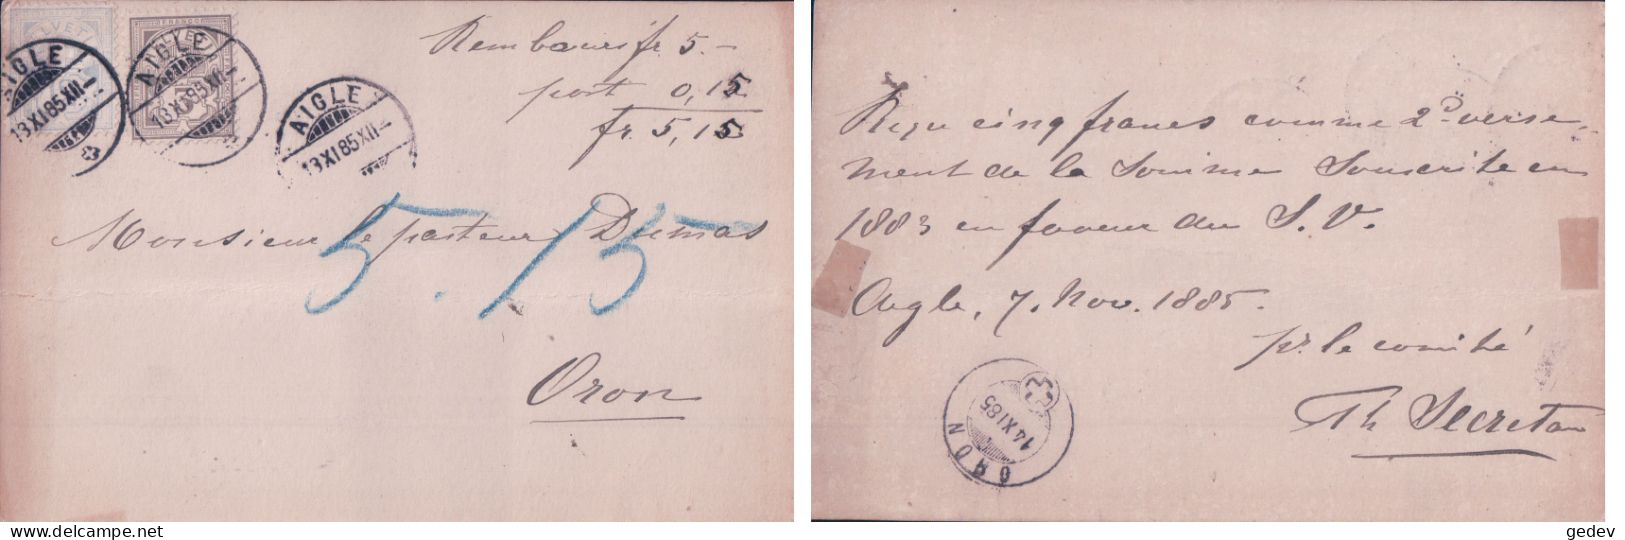 FRANCO
HELVETIA
AIGLE
13 XI 85 XII-
AIGLE
13 XI 85 XII-
AIGLE
13 XI 85 XII-
Rembours fr 5.-
port 0,15
fr. 5,15
Monsieur le pasteur Dumas
5.15
Oron
Reçu cinq francs comme 2d verse-
ment de la Somme Souscrite en
1883 en faveur du S. V.
Aigle, 7. Nov. 1885.
pr. le comité
Th Secretan
ORON
14 XI 85
gedev